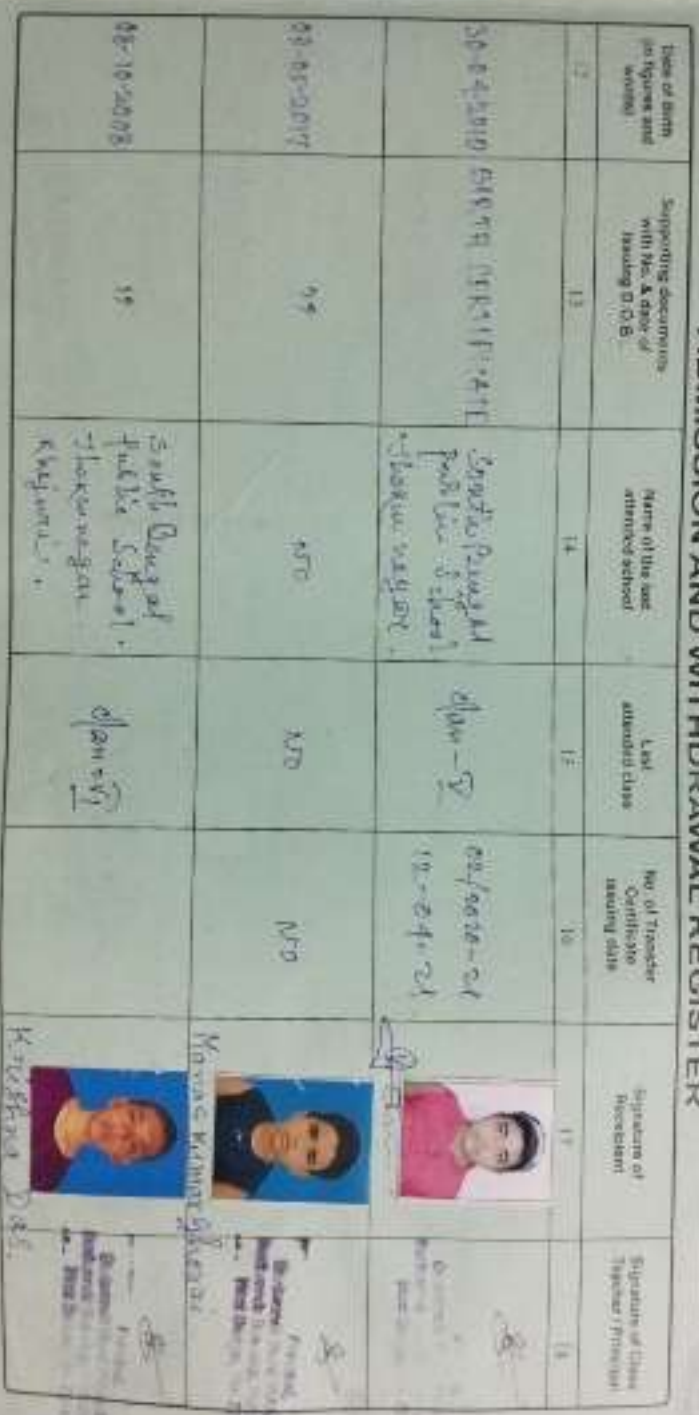 ADMISSION AND WITHDRAWAL REGISTER
Date of Birth
(in figures and
words)
Supporting documents
with No. & date of
issuing D.O.B
Name of the last
attended school
Last
attended class
No. of Transfer
Certificate
issuing date
Signature of
Recipient
Signature of Class
Teacher / Principal
12
13
14
15
16
17
18
30-04-2010
BIRTH CERTIFICATE
South Bengal
public School
Thakurnagar.
class - V
02/2020-21
12-04-21
08-05-2017
"
NO
NO
NO
Manas Kumar
08-10-2008
"
South Bengal
Public School.
Thakurnagar
Khejuri.
class - VI
Krushna Das.